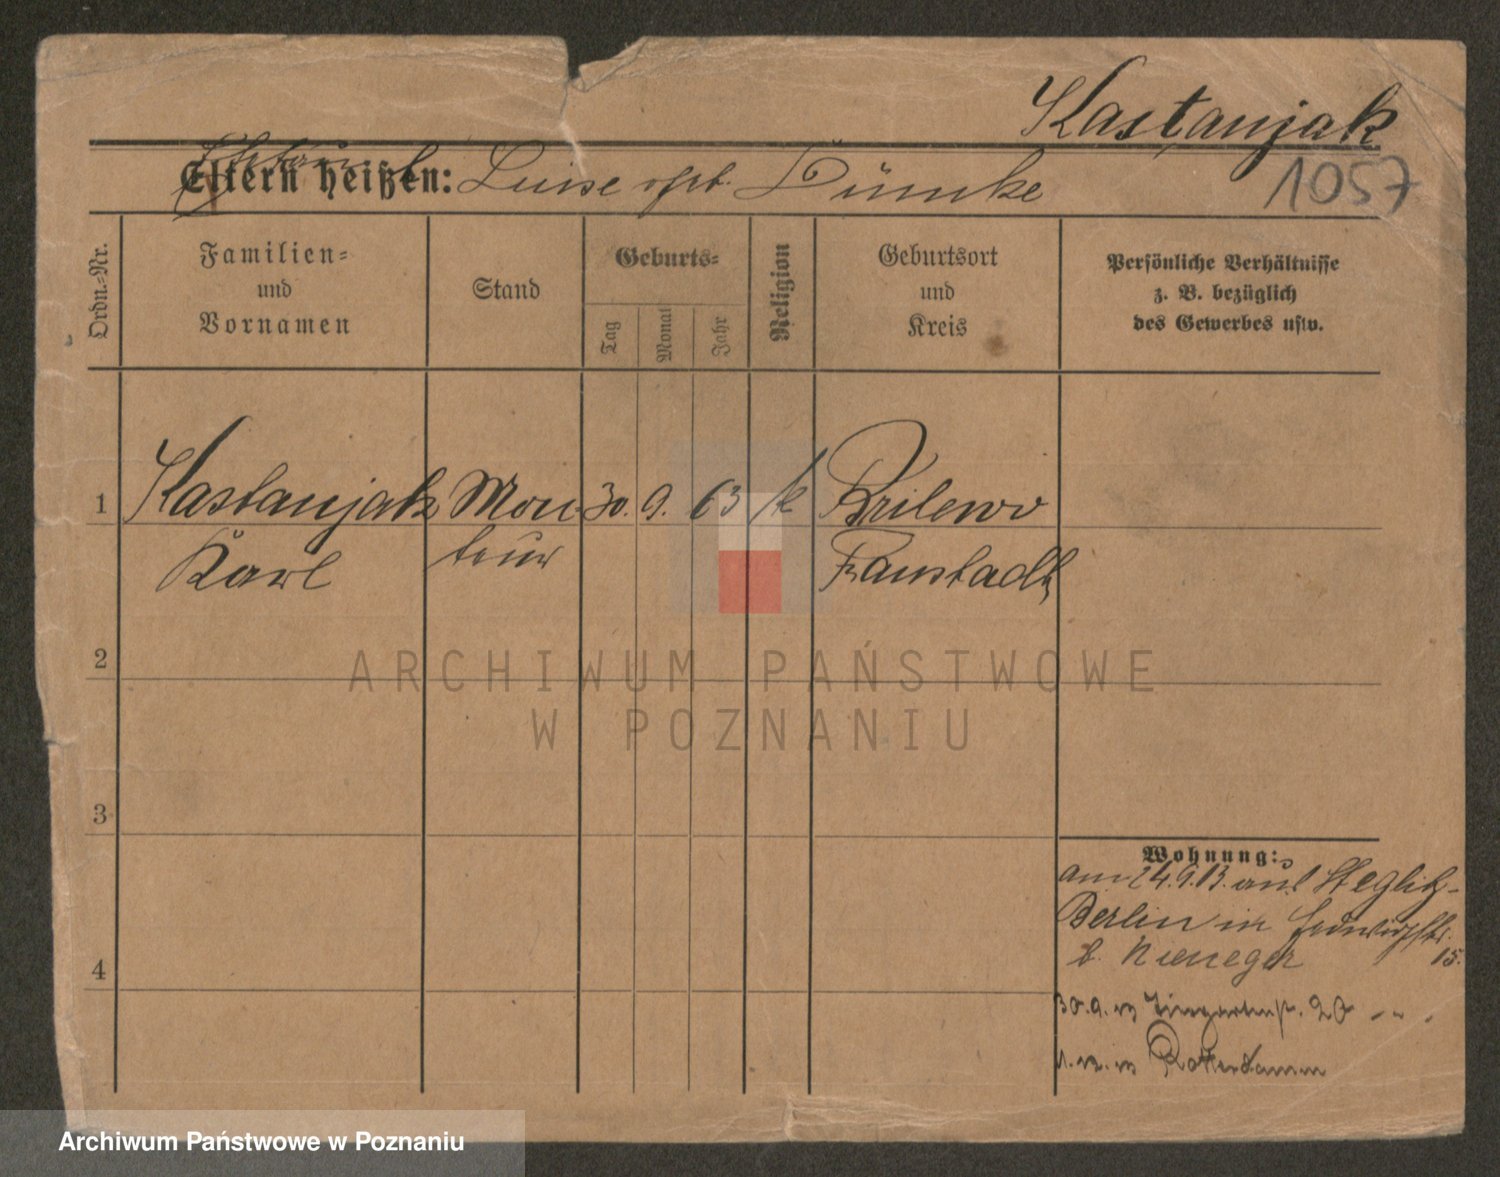 Kastanjak
1057
Eltern heißen: Luise geb. Dümke
Ordn.-Nr.
Familien-
und
Vornamen
Stand
Geburts-
Tag
Monat
Jahr
Religion
Geburtsort
und
Kreis
Persönliche Verhältnisse
z. B. bezüglich
des Gewerbes usw.
1 Kastanjak Mon- 30. 9. 63 k Brilewo
Karl teur Fraustadt
2
3
4
Wohnung:
am 24.9.13. aus Steglitz-
Berlin in
b. 15.
30.9. 20
Rotterdamm
ARCHIWUM PAŃSTWOWE
W POZNANIU
Archiwum Państwowe w Poznaniu